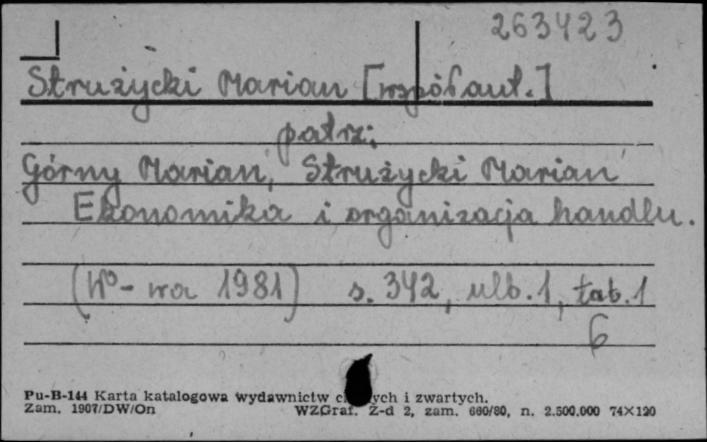 263423
Strużycki Marian [współaut.]
patrz:
Górny Marian, Strużycki Marian
Ekonomika i organizacja handlu.
(W⁰-wa 1981) s. 342, ulb. 1, tab. 1
6
Pu-B-144 Karta katalogowa wydawnictw i zwartych.
Zam. 1907/DW/On WZGraf. Z-d 2, zam. 660/80, n. 2.500.000 74×120